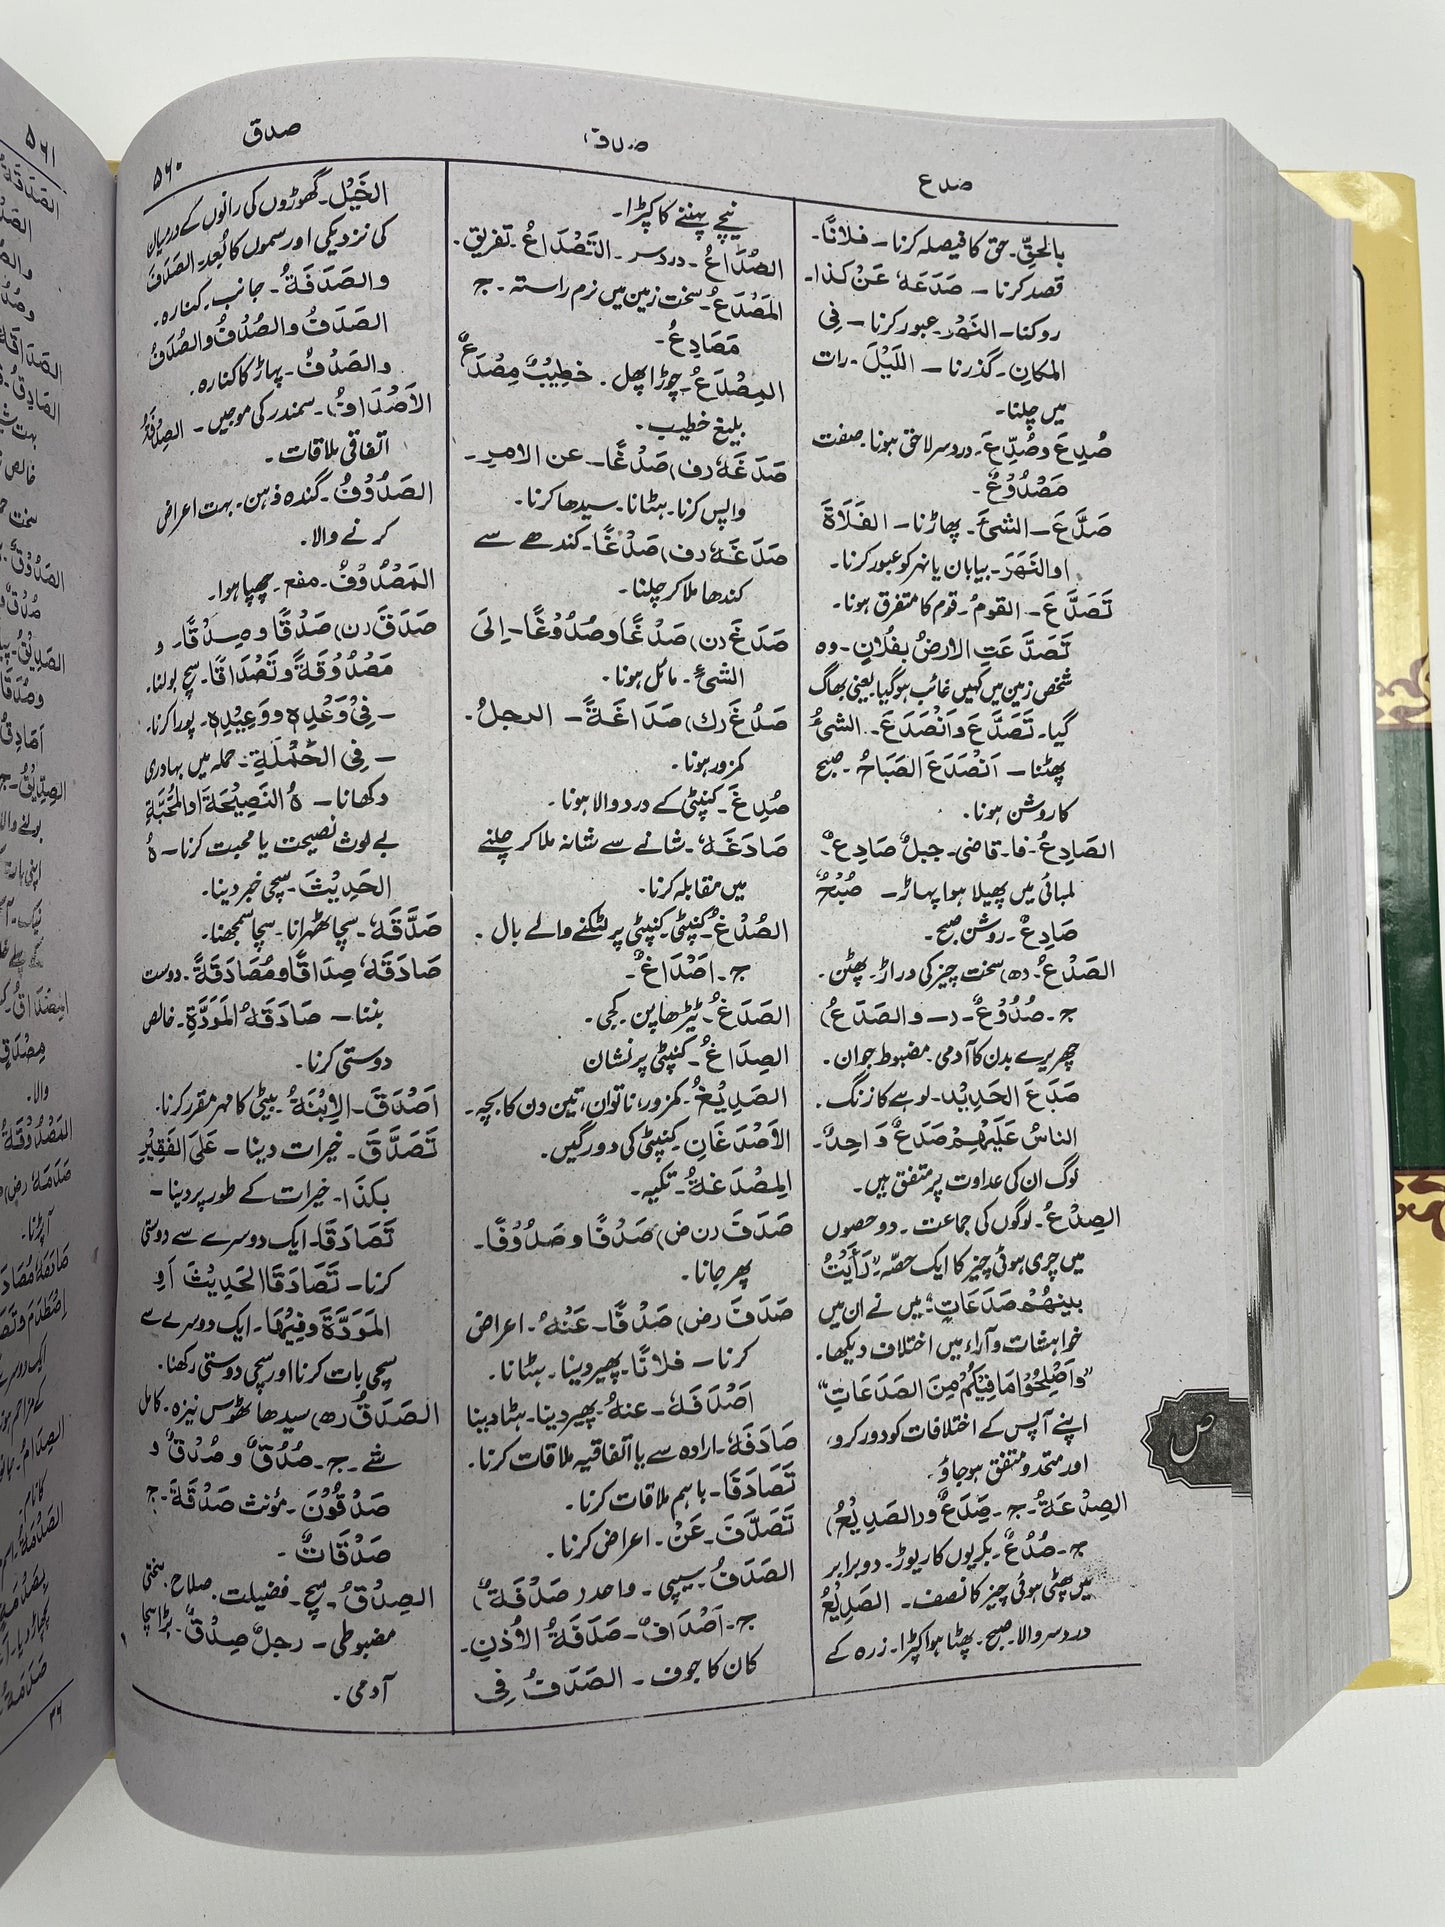 صدع
صدف
صدق
۵۶۰
بالحقِّ۔ حق کا فیصلہ کرنا۔ فلانًا۔
قصد کرنا۔ صَدَعَہٗ عَنْ کذا۔
روکنا۔ النَهْرَ۔ عبور کرنا۔ فِی
المکانِ۔ گذرنا۔ اللَیْلَ۔ رات
میں چلنا۔
صُدِعَ وصُدِّعَ۔ دردسر لاحق ہونا۔ صفت
مَصْدُوْعٌ۔
صَدَّعَ۔ الشیَٔ۔ پھاڑنا۔ الفَلَاةَ
اوالنَهَرَ۔ بیابان یا نہر کو عبور کرنا۔
تَصَدَّعَ۔ القومُ۔ قوم کا متفرق ہونا۔
تَصَدَّعَتِ الارضُ بفُلانٍ۔ وہ
شخص زمین میں کہیں غائب ہو گیا۔ یعنی بھاگ
گیا۔ تَصَدَّعَ وَانْصَدَعَ۔ الشیُٔ
پھٹنا۔ اَنْصَدَعَ الصَبَاحُ۔ صبح
کا روشن ہونا۔
الصَادِعُ۔ فا۔ قاضی۔ جبلٌ صَادِعٌ۔
لمبائی میں پھیلا ہوا پہاڑ۔ صُبْحٌ
صَادِعٌ۔ روشن صبح۔
الصَدْعُ۔ سخت چیز کی دراڑ۔ پھٹن۔
ج۔ صُدُوْعٌ۔ والصَدَعُ)
چھریرے بدن کا آدمی۔ مضبوط جوان۔
صَدَعَ الحَدِیْد۔ لوہے کا زنگ۔
الناسُ عَلَیْهِمْ صَدَعٌ وَاحِدٌ۔
لوگ ان کی عداوت پر متفق ہیں۔
الصِدْعُ۔ لوگوں کی جماعت۔ دو حصوں
میں چری ہوئی چیز کا ایک حصہ۔ "رَأَیْتُ
بینهُمْ صَدَعَاتٍ"۔ میں نے ان میں
خواہشات و آراء میں اختلاف دیکھا۔
"وَاَصْلِحُوْا مَا فِیْکُمْ مِنَ الصَدَعَاتِ"
اپنے آپس کے اختلافات کو دور کرو،
اور متحد و متفق ہو جاؤ۔
الصِدْعَةُ۔ ج۔ صِدَعٌ (والصَدِیْعُ)
ج۔ صُدُعٌ۔ بکریوں کا ریوڑ۔ دو برابر
میں پھٹی ہوئی چیز کا نصف۔ الصَدِیْعُ
دردسر والا۔ صبح۔ پھٹا ہوا کپڑا۔ زرہ کے
ص
نیچے پہننے کا کپڑا۔
الصُدَاعُ۔ دردسر۔ التَصْدَاعُ۔ تفریق۔
المَصْدَعُ۔ سخت زمین میں نرم راستہ۔ ج
مَصَادِعُ۔
المِصْدَعُ۔ چوڑا پھل۔ خطِیْبٌ مِصْدَعٌ
بلیغ خطیب۔
صَدَغَہٗ (ف) صَدْغًا۔ عن الامرِ۔
واپس کرنا۔ ہٹانا۔ سیدھا کرنا۔
صَدَغَہٗ (ف) صَدْغًا۔ کندھے سے
کندھا ملا کر چلنا۔
صَدَغَ (ن) صَدْغًا وصُدُوْغًا۔ اِلَی
الشیٔ۔ مائل ہونا۔
صَدُغَ (ك) صَدَاغَةً۔ الرجلُ۔
کمزور ہونا۔
صُدِغَ۔ کنپٹی کے درد والا ہونا۔
صَادَغَہٗ۔ شانے سے شانہ ملا کر چلنے
میں مقابلہ کرنا۔
الصُدْغُ۔ کنپٹی۔ کنپٹی پر لٹکنے والے بال۔
ج۔ اَصْدَاغٌ۔
الصَدَغُ۔ ٹیڑھا پن۔ کجی۔
الصِدَاغُ۔ کنپٹی پر نشان
الصَدِیْغُ۔ کمزور، ناتوان، تین دن کا بچہ۔
الاَصْدَغَانِ۔ کنپٹی کی دو رگیں۔
المِصْدَغَةُ۔ تکیہ۔
صَدَفَ (ن ض) صَدْفًا وصُدُوْفًا۔
پھر جانا۔
صَدَفَ (ض) صَدْفًا۔ عَنْهُ۔ اعراض
کرنا۔ فلانًا۔ پھیر دینا۔ ہٹانا۔
اَصْدَفَہٗ۔ عنهُ۔ پھیر دینا۔ ہٹا دینا
صَادَفَہٗ۔ ارادہ سے یا اتفاقیہ ملاقات کرنا۔
تَصَادَفَا۔ باہم ملاقات کرنا۔
تَصَدَّفَ۔ عَنْ۔ اعراض کرنا۔
الصَدَفُ۔ سیپی۔ واحد (صَدَفَةٌ)
ج۔ اَصْدَافٌ۔ صَدَفَةُ الاُذُنِ۔
کان کا جوف۔ الصَدَفُ فِی
الخَیْلِ۔ گھوڑوں کی رانوں کے درمیان
کی نزدیکی اور سموں کا بُعد۔ الصَدَفُ
والصَدَفَةُ۔ جانب۔ کنارہ۔
الصَدَفُ والصُدُفُ والصُدَفُ
والصَدُفُ۔ پہاڑ کا کنارہ۔
الاَصْدَافُ۔ سمندر کی موجیں۔ الصِدْفَةُ
اتفاقی ملاقات۔
الصَدُوْفُ۔ گندہ ذہن۔ بہت اعراض
کرنے والا۔
المَصْدُوْفُ۔ مفع۔ چھپا ہوا۔
صَدَقَ (ن) صَدْقًا وصِدْقًا۔ و
مَصْدُوْقَةً وتَصْدَاقًا۔ سچ بولنا۔
۔ فِیْ وَعْدِهٖ ووَعِیْدِهٖ۔ پورا کرنا۔
۔ فِی الحَمْلَةِ۔ حملہ میں بہادری
دکھانا۔ هُ النَصِیْحَةَ اوالمَحَبَّةَ
بے لوث نصیحت یا محبت کرنا۔ هُ
الحَدِیْثَ۔ سچی خبر دینا۔
صَدَّقَہٗ۔ سچا ٹھہرانا۔ سچا سمجھنا۔
صَادَقَہٗ صِدَاقًا ومُصَادَقَةً۔ دوست
بننا۔ صَادَقَهُ المَوَدَّةَ۔ خالص
دوستی کرنا۔
اَصْدَقَ۔ الاِبْنَةَ۔ بیٹی کا مہر مقرر کرنا۔
تَصَدَّقَ۔ خیرات دینا۔ عَلَی الفَقِیْرِ
بکذَا۔ خیرات کے طور پر دینا۔
تَصَادَقَا۔ ایک دوسرے سے دوستی
کرنا۔ تَصَادَقَا الحَدِیْثَ اَوِ
المَوَدَّةَ وفِیْهَا۔ ایک دوسرے سے
سچی بات کرنا اور سچی دوستی رکھنا۔
الصَدْقُ۔ سیدھا ٹھوس نیزہ۔ کامل
شے۔ ج۔ صُدُقٌ و صُدْقٌ و
صَدْقُوْنَ۔ مؤنث صَدْقَةٌ۔ ج
صَدْقَاتٌ۔
الصِدْقُ۔ سچ۔ فضیلت۔ صلاح۔ سختی
مضبوطی۔ رجلٌ صِدْقٌ۔ بڑا سچا
آدمی۔
۵۶۱
۳۶